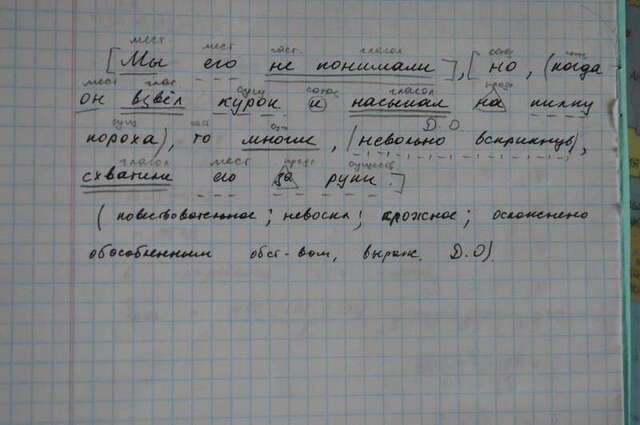 мест мест част. глагол союз союз
[Мы его не понимали], [но, (когда
мест глаг. сущ союз глагол предл
он взвёл курок и насыпал на полку
сущ Д.О
пороха), то многие, (невольно вскрикнув),
глагол мест предл существ
схватили его за руки.]
(повествовательное; невоскл; сложное; осложнено
обособленным обст-вом, выраж. Д.О).